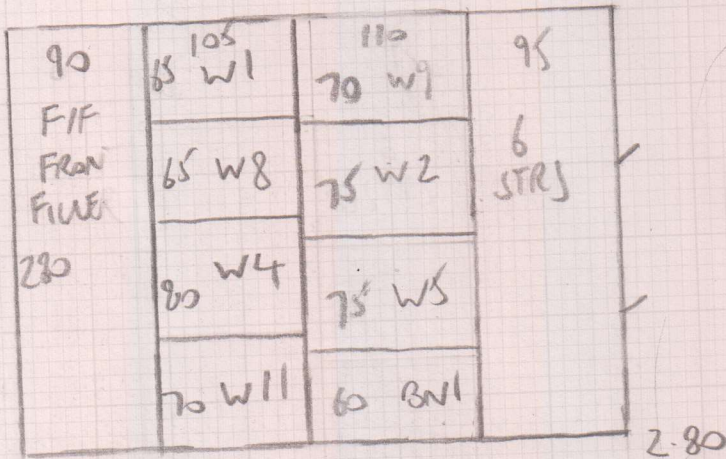 90
F/F
FRON
FILLE
280
105
65 W1
65 W8
80 W4
70 W11
110
70 W9
75 W2
75 W5
60 BN1
95
6
STRS
2.80